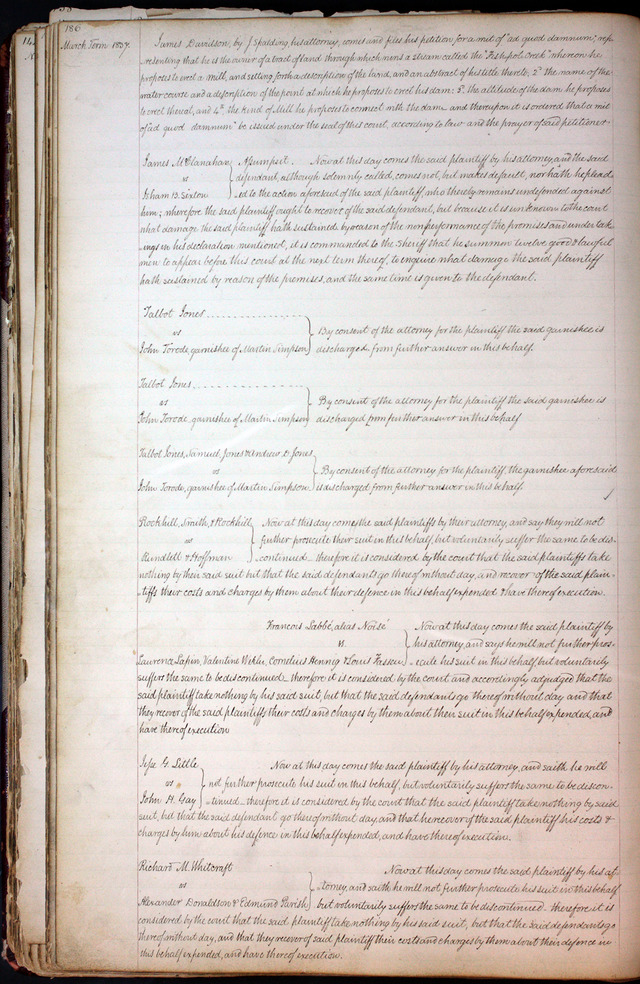 186
March Term 1837.
James Davidson, by J Spalding, his attorney, comes and files his petition for a writ of "ad quod damnum", rep-
-resenting that he is the owner of a tract of land through which runs a stream called the "Fishpot Creek" whereon he
proposes to erect a mill, and setting forth a description of the land, and an abstract of his title thereto; 2d the name of the
water course and a description of the point at which he proposes to erect his dam: 3d the altitude of the dam he proposes
to erect thereat, and 4th the kind of Mill he proposes to connect with the dam and thereupon it is ordered that a writ
of "ad quod damnum" be issued under the seal of this court, according to law and the prayer of said petitioner
James McClanahan } Assumpsit. Now at this day comes the said plaintiff by his attorney, and the said
vs defendant, although solemnly called, comes not, but makes default, nor hath he plead
Isham B. Sexton -ed to the action aforesaid of the said plaintiff, who thereby remains undefended against
him; wherefore the said plaintiff ought to recover of the said defendant, but because it is unknown to the court
what damage the said plaintiff hath sustained by reason of the nonperformance of the promises and undertak
ings in his declaration mentioned, it is commanded to the Sheriff that he summon twelve good & lawful
men to appear before this court at the next term thereof, to enquire what damage the said plaintiff
hath sustained by reason of the premises, and the same time is given to the defendant.
Talbot Jones
vs } By consent of the attorney for the plaintiff the said garnishee is
John Torode, garnishee of Martin Simpson discharged from further answer in this behalf.
Talbot Jones
vs } By consent of the attorney for the plaintiff the said garnishee is
John Torode, garnishee of Martin Simpson discharged from further answer in this behalf
Talbot Jones, Samuel Jones & Andrew D. Jones
vs } By consent of the attorney for the plaintiff, the garnishee aforesaid
John Torode, garnishee of Martin Simpson. is discharged from further answer in this behalf.
Rockhill, Smith, & Rockhill } Now at this day comes the said plaintiffs by their attorney, and say they will not
vs further prosecute their suit in this behalf, but voluntarily suffer the same to be dis-
Rundlett & Hoffman -continued therefore it is considered by the court that the said plaintiffs take
nothing by their said suit but that the said defendants go thereof without day, and recover of the said plain-
-tiffs their costs and charges by them about their defence in this behalf expended & have thereof execution.
Francois Labbé, alias Noisé Now at this day comes the said plaintiff by
vs. } his attorney, and says he will not further pros-
Laurence Lapin, Valentine Wehle, Cornelius Hennig & Louis Fasseu -ecute his suit in this behalf, but voluntarily
suffers the same to be discontinued therefore it is considered by the court and accordingly adjudged that the
said plaintiff take nothing by his said suit, but that the said defendants go thereof without day and that
they recover of the said plaintiffs their costs and charges by them about their suit in this behalf expended, and
have thereof execution
Jesse G. Little Now at this day comes the said plaintiff by his attorney, and saith he will
vs } not further prosecute his suit in this behalf, but voluntarily suffers the same to be discon-
John H. Gay -tinued therefore it is considered by the court that the said plaintiff take nothing by said
suit, but that the said defendant go thereof without day, and that he recover of the said plaintiff his costs &
charges by him about his defence in this behalf expended, and have thereof execution.
Richard M. Whitcraft Now at this day comes the said plaintiff by his at-
vs } -torney, and saith he will not further prosecute his suit in this behalf
Alexander Donaldson & Edmund Parish but voluntarily suffers the same to be discontinued therefore it is
considered by the court that the said plaintiff take nothing by his said suit, but that the said defendants go
thereof without day, and that they recover of said plaintiff their costs and charges by them about their defence in
this behalf expended, and have thereof execution.